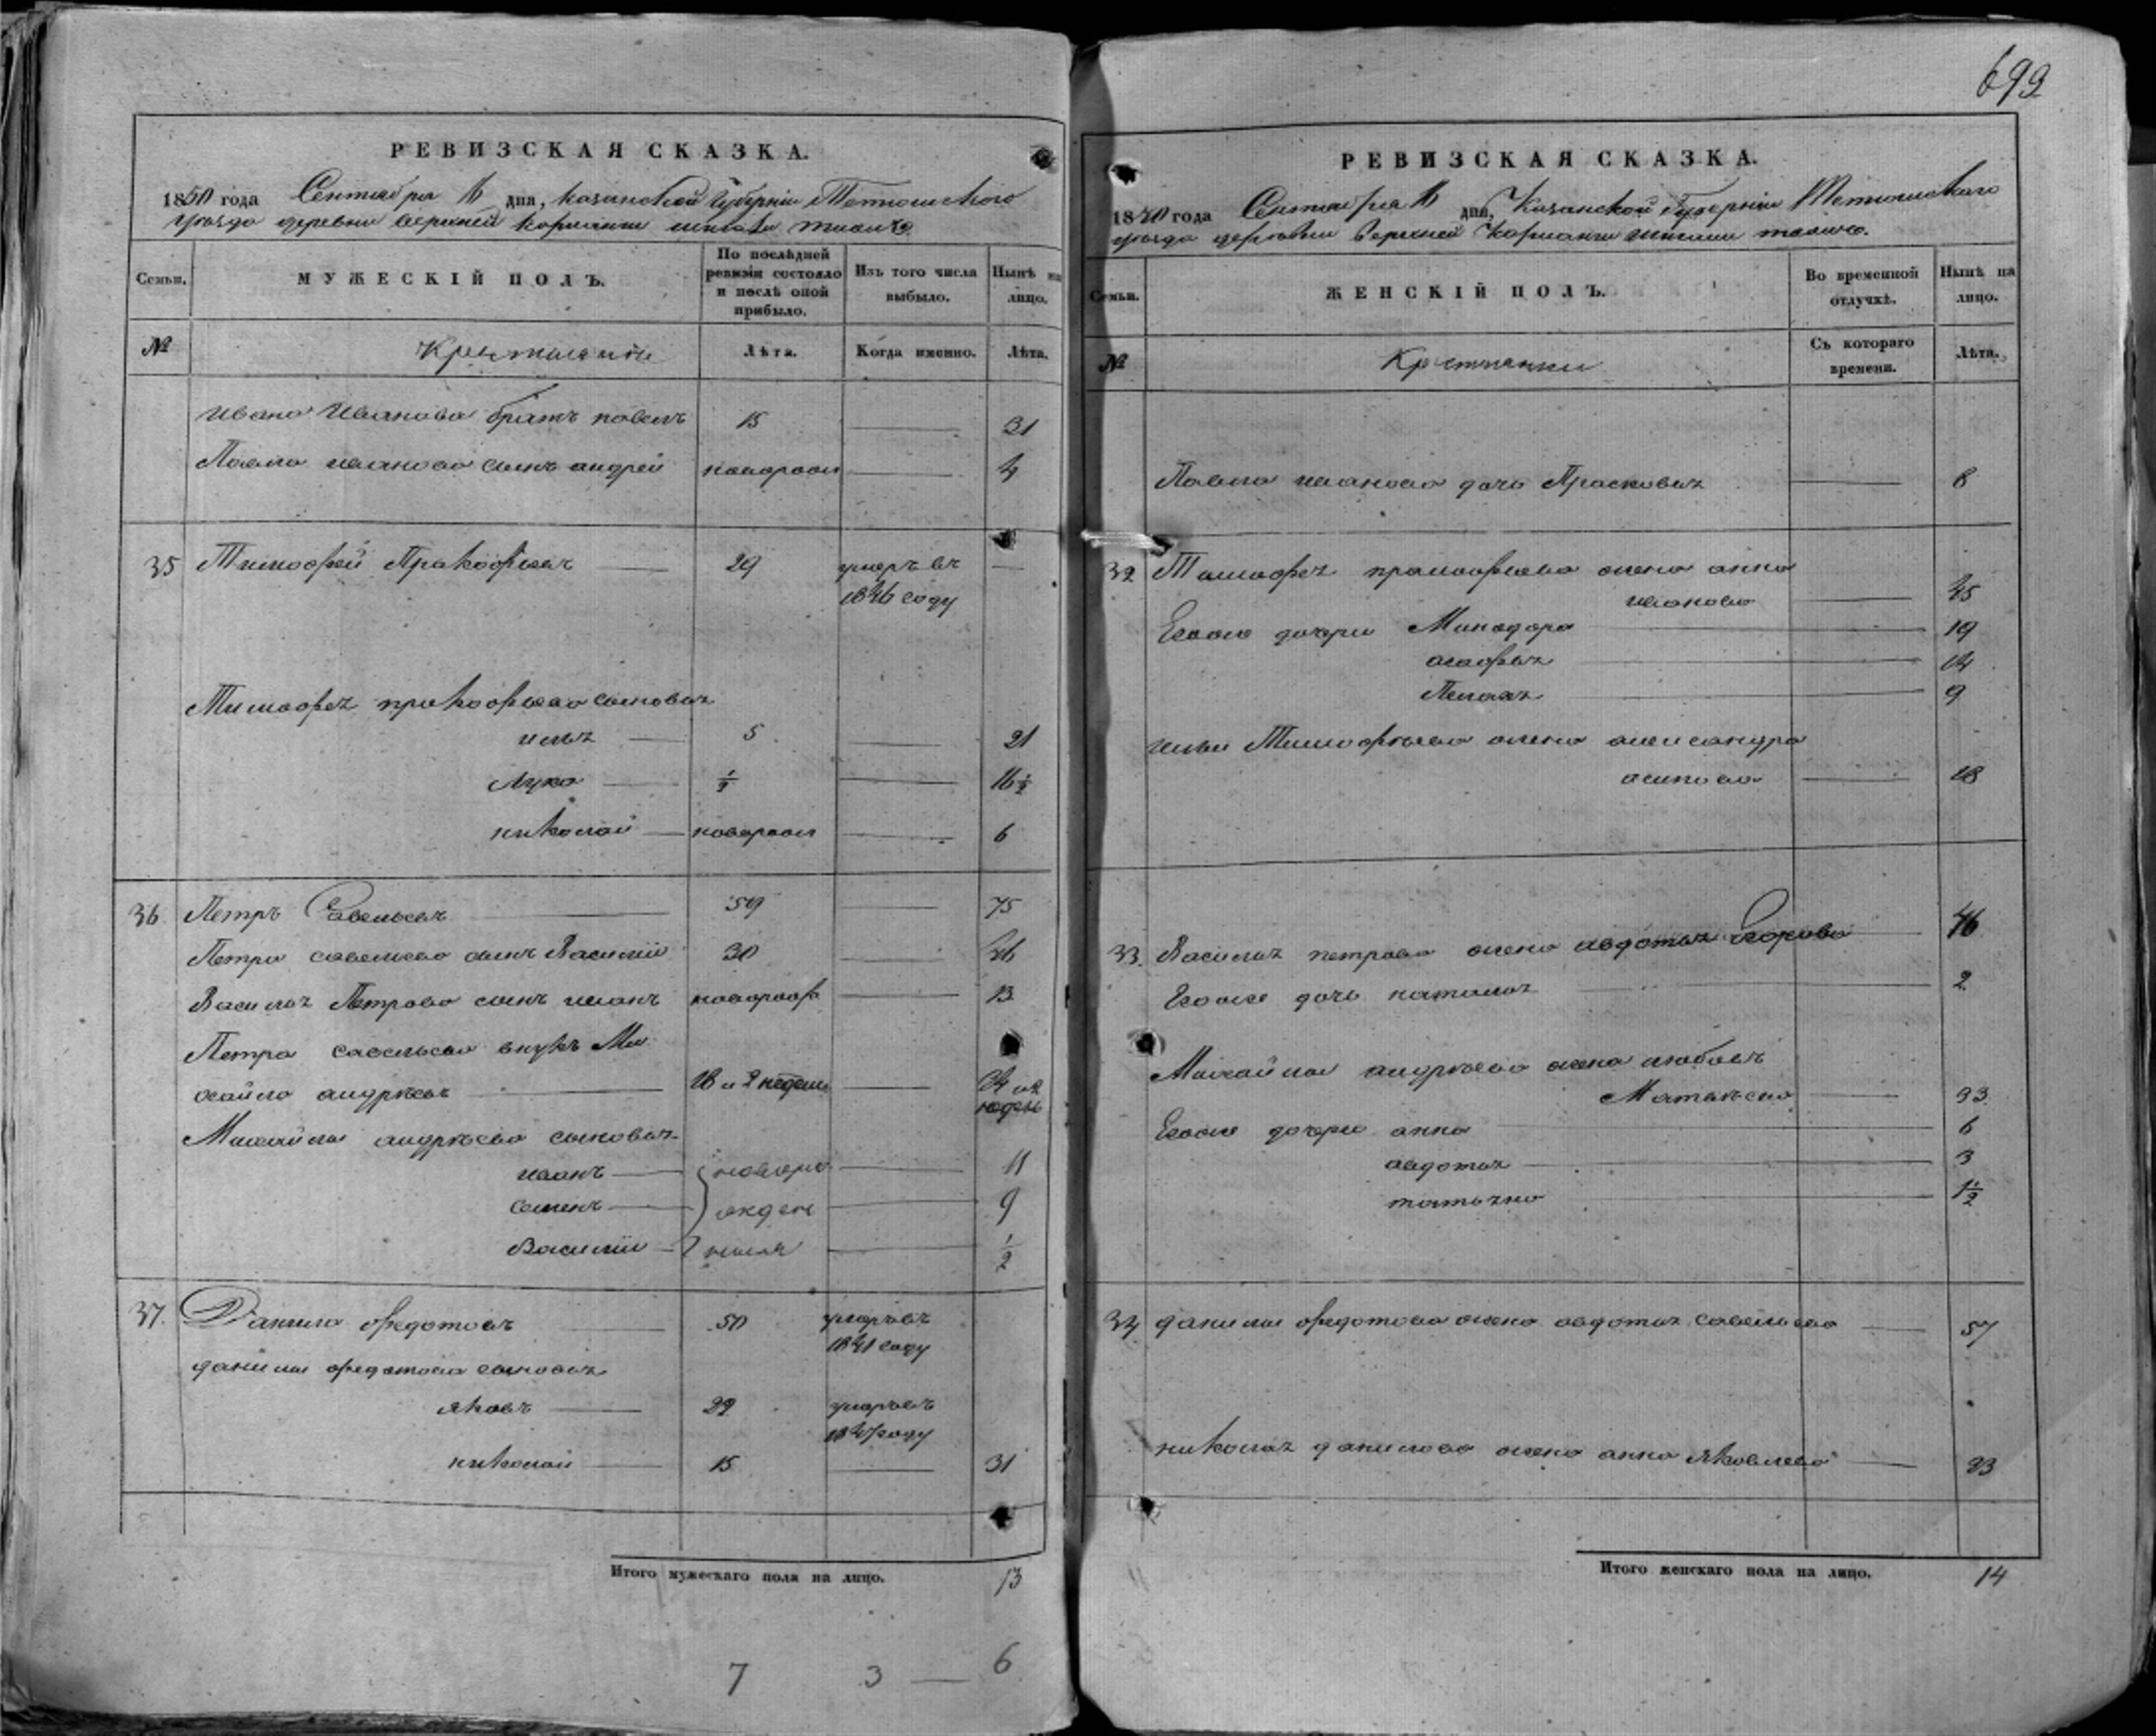 РЕВИЗСКАЯ СКАЗКА.
1850 года Сентября дня, Казанской Губернии Тетюшскаго
уезда деревни верхней
Семьи. МУЖЕСКІЙ ПОЛЪ. По послѣдней ревизіи состояло и послѣ оной прибыло. Изъ того числа выбыло. Нынѣ на лицо.
№ Крестьяне Лѣта. Когда именно. Лѣта.
Ивана Иванова братъ павелъ 15 31
Павла иванова сынъ андрей новорож 4
35 Тимофей Пракофьевъ 29 умеръ въ
1846 году
Тимофея прокофьева сыновья
илья 5 21
Лука ½ 16½
николай новорож 6
36. Петръ Савельевъ 59 75
Петра савельева сынъ Василий 30 46
Василья Петрова сынъ иванъ новорож 13
Петра савельева внукъ Ми
хайла андреевъ 18 и 2 недели 34 и 2
недел
Михайлы андреева сыновья
иванъ новоро 11
семенъ жден 9
Василий ныя ½
37. Данила федотовъ 50 умеръ въ
1841 году
данилы федотова сыновья
яковъ 22 умеръ въ
1847 году
николай 15 31
Итого мужескаго пола на лицо. 13
7 3 — 6
699
РЕВИЗСКАЯ СКАЗКА.
1850 года Сентября дня, Казанской Губернии Тетюшскаго
уезда деревни верхней
Семьи. ЖЕНСКІЙ ПОЛЪ. Во временной отлучкѣ. Нынѣ на лицо.
№ Крестьянки Съ котораго времени. Лѣта.
Павла иванова дочь Прасковья 8
32 Тимофея прокофьева жена анна
иванова 45
Егоже дочери Минодора 19
агафья 14
Пелагея 9
ильи Тимофеева жена александра
осипова 18
33. Василья петрова жена авдотья Егорова 46
Егоже дочь наталья 2
Михайлы андреева жена любовь
Матвеева 33
Егоже дочери анна 6
авдотья 3
татьяна 1½
34 данилы федотова жена авдотья савельева 57
николая данилова жена анна яковлева 23
Итого женскаго пола на лицо. 14